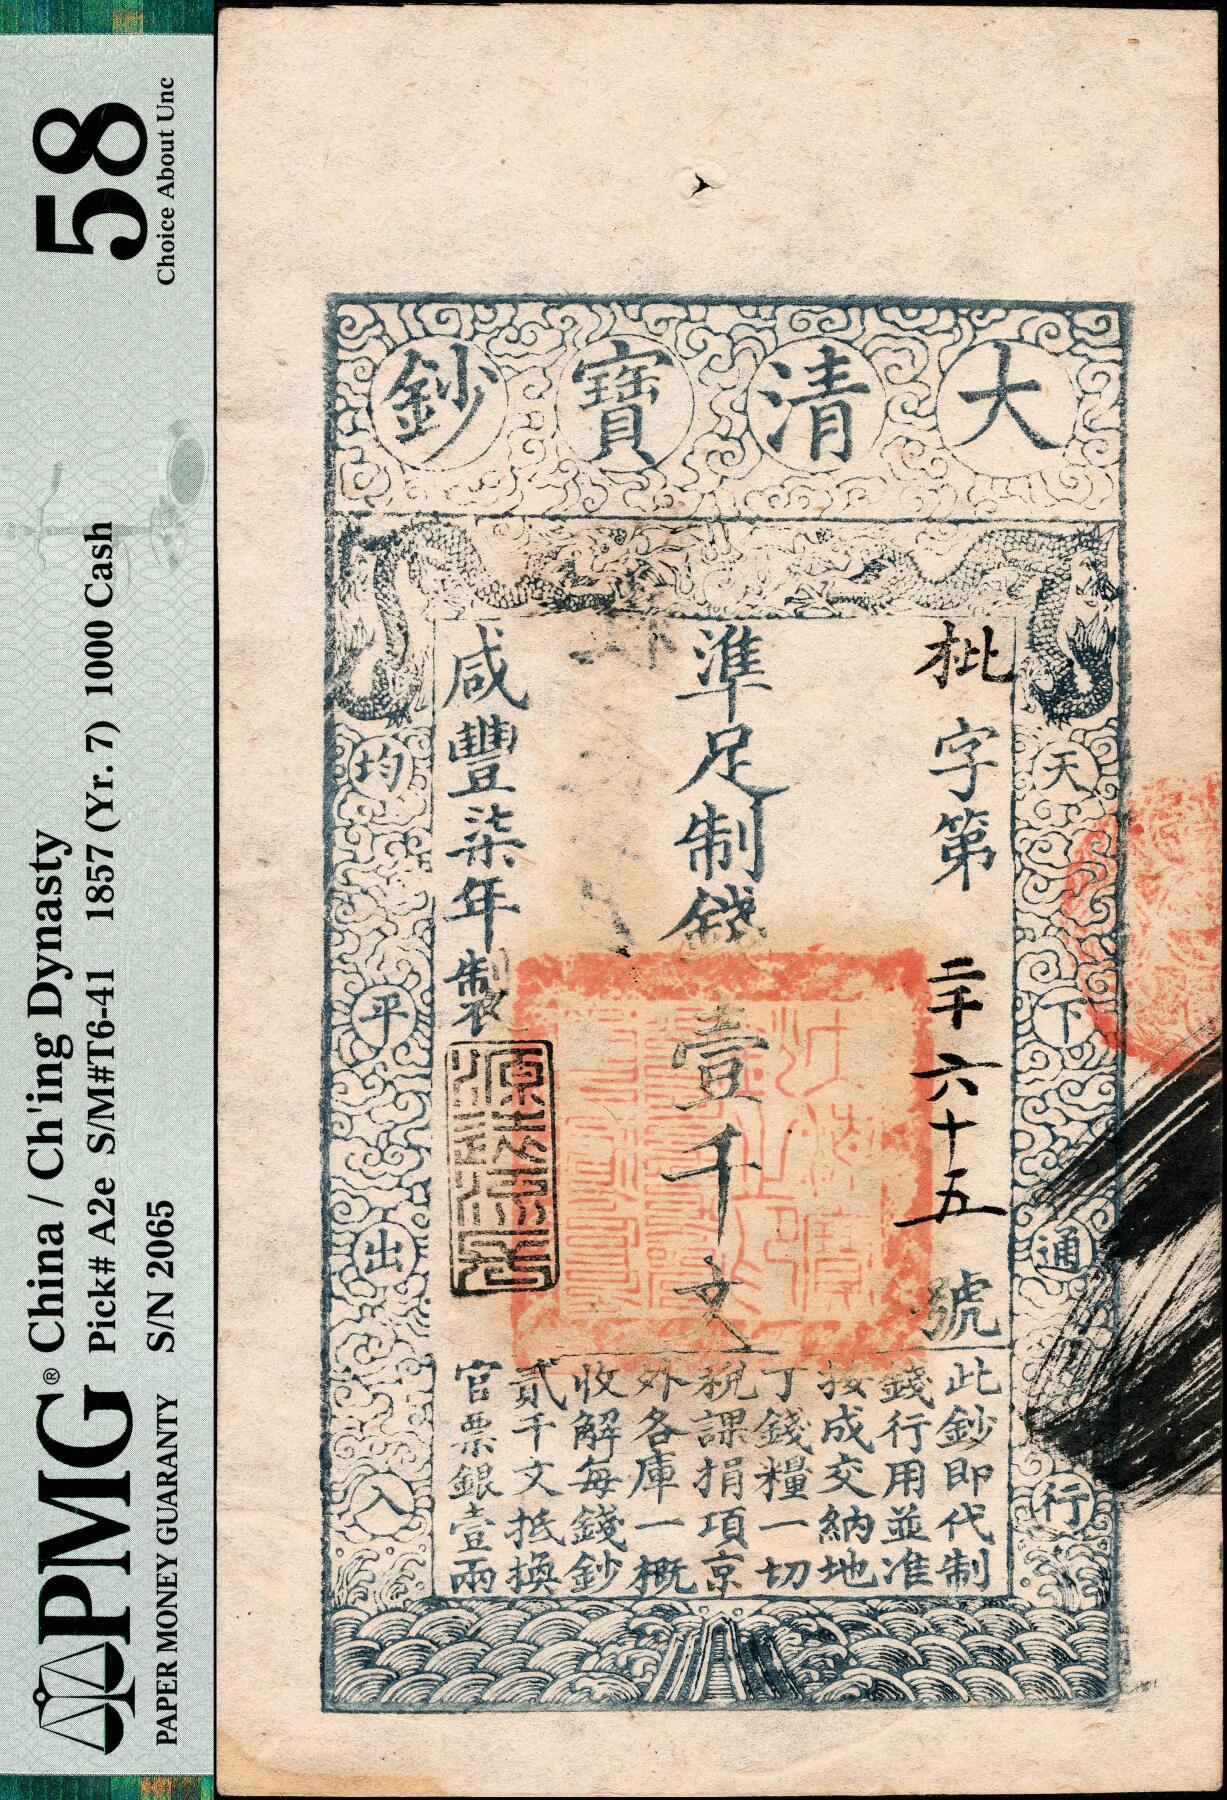 PMG®
PAPER MONEY GUARANTY
China / Ch'ing Dynasty
Pick# A2e S/M#T6-41 1857 (Yr. 7) 1000 Cash
S/N 2065
58
Choice About Unc
大清寶鈔
天下通行
均平出入
枇字第二千六十五號
準足制錢壹千文
咸豐柒年製
此鈔即代制
錢行用並准
按成交納地
丁錢糧一切
稅課捐項京
外各庫一概
收解每錢鈔
貳千文抵換
官票銀壹兩